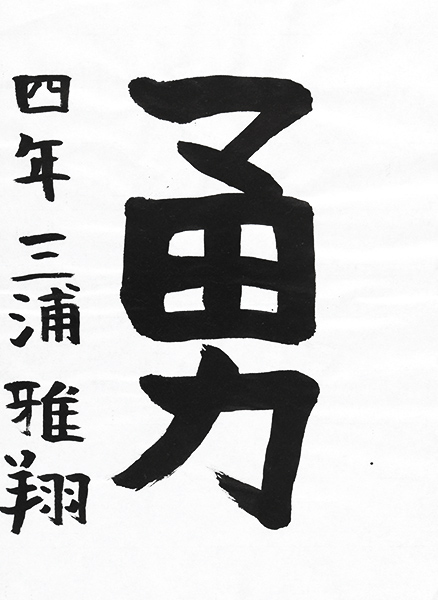 勇
四年 三浦 雅翔